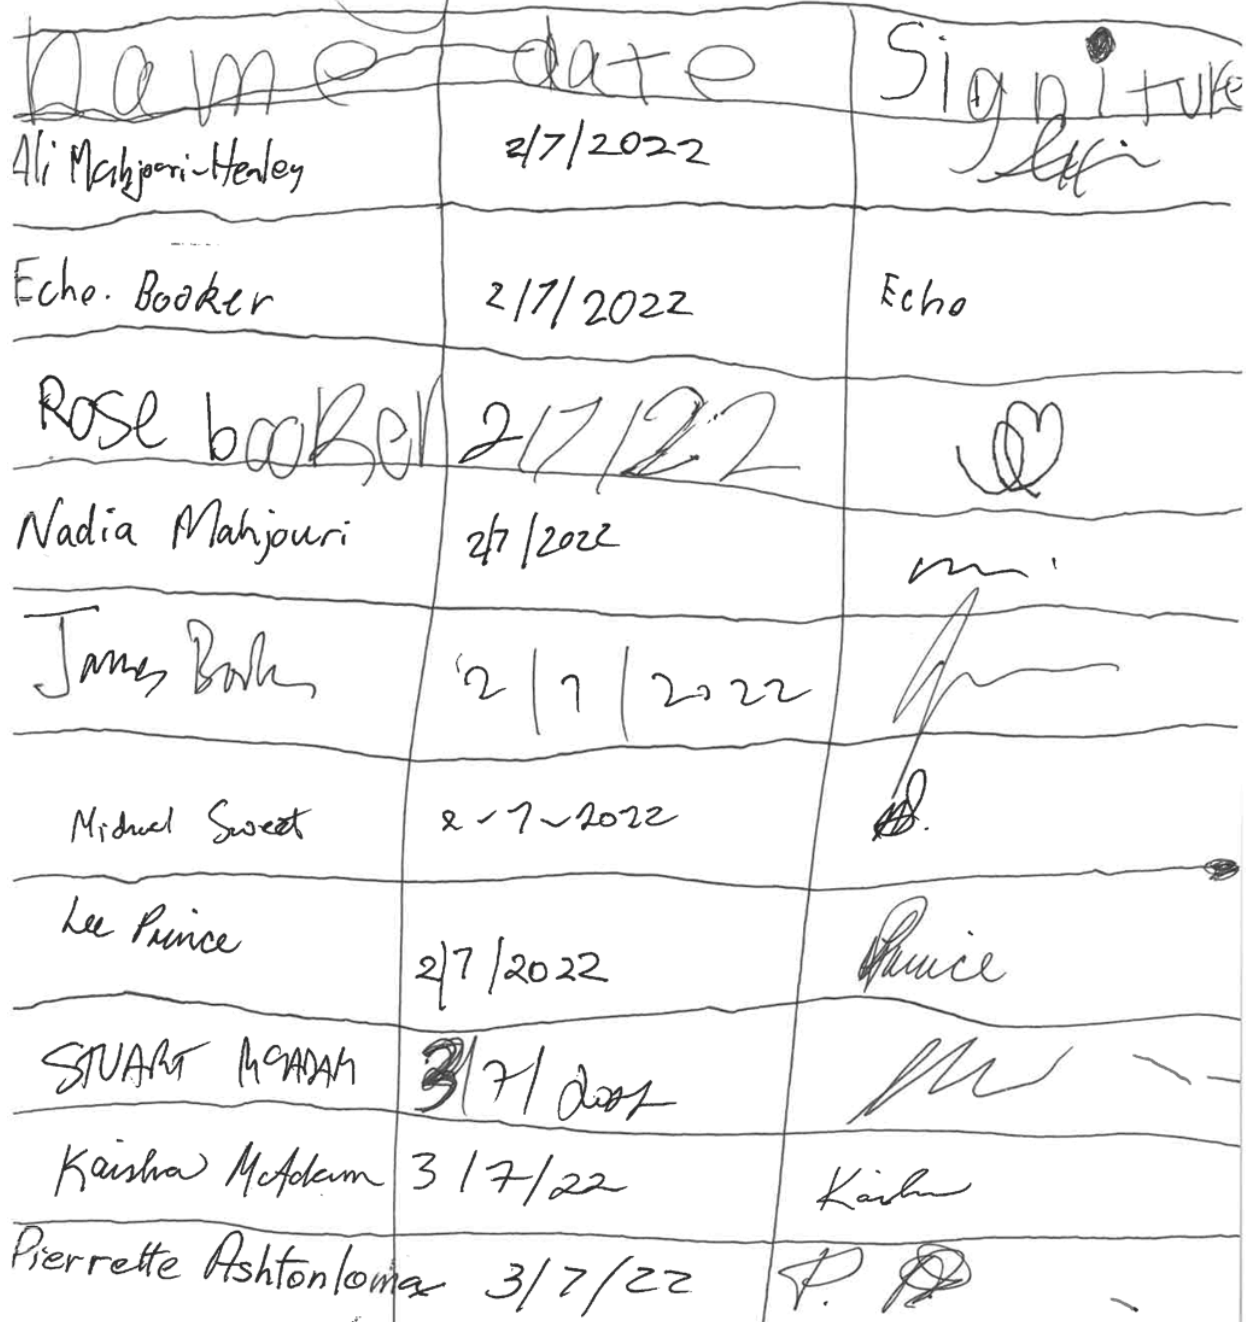 name date Signiture
Ali Mahjouri-Henley 2/7/2022
Echo. Booker 2/7/2022 Echo
Rose booker 2/7/22
Nadia Mahjouri 2/7/2022
James Booker 2/7/2022
Michael Sweet 2-7-2022
Lee Prince 2/7/2022 Prince
STUART McADAM 3/7/2022
Kaisha McAdam 3/7/22 Kaisha
Pierrette Ashtonlomax 3/7/22 P.